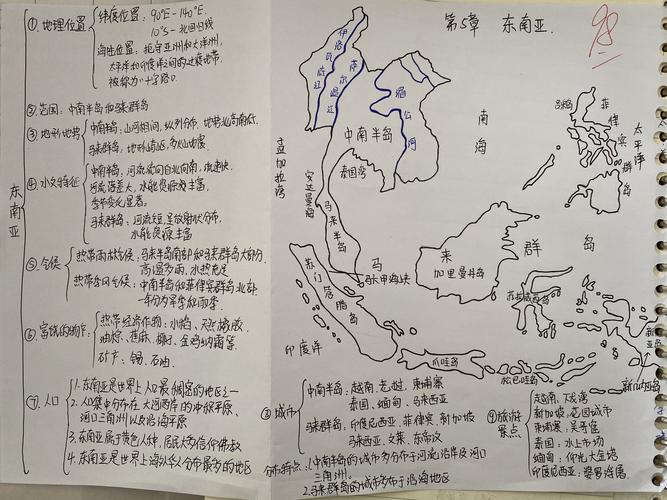 第5章 东南亚.
98
东南亚
①地理位置
纬度位置: 90°E-140°E.
10°S-北回归线
海陆位置: 拒守亚洲和大洋洲,
太平洋和印度洋间的过渡地带.
被称为"十字路口
②范围: 中南半岛和马来群岛
③地形地势
中南半岛: 山河相间, 纵列分布. 地势北高南低.
马来群岛: 地形崎岖, 多火山地震
④水文特征
中南半岛: 河流流向自北向南, 流速快.
河流落差大, 水能资源丰富,
季节变化显著.
马来群岛: 河流短, 呈放射状分布,
水能资源丰富
⑤气候
热带雨林气候: 马来半岛南部和马来群岛大部分.
高温多雨, 水热充足
热带季风气候: 中南半岛和菲律宾群岛北部
一年分为旱季和雨季.
⑥富饶的物产
热带经济作物: 水稻、天然橡胶,
油棕、蕉麻、椰子、金鸡纳霜等.
矿产: 锡、石油.
⑦人口
1.东南亚是世界上人口最稠密的地区之一
2.人口集中分布在大河两岸的冲积平原、
河口三角洲以及沿海平原
3.东南亚属于黄色人种, 居民大多信仰佛教
4.东南亚是世界上海外华人分布最多的地区
伊洛瓦底江
萨尔温江
湄公河
中南半岛
南海
孟加拉湾
安达曼海
泰国湾
马来半岛
吕宋岛
菲律宾群岛
太平洋
马来群岛
马六甲海峡
加里曼丹岛
苏门答腊岛
苏拉威西岛
印度洋
爪哇岛
松巴哇岛
新几内亚岛
⑧城市
中南半岛: 越南、老挝、柬埔寨
泰国、缅甸、马来西亚
马来群岛: 印度尼西亚、菲律宾、新加坡
马来西亚、文莱、东帝汶
分布特点: 1.中南半岛的城市多分布于河流沿岸及河口
三角洲.
2.马来群岛的城市多分布于沿海地区
⑨旅游景点
越南: 下龙湾
新加坡: 花园城市
柬埔寨: 吴哥窟
泰国: 水上市场
缅甸: 仰光大金塔
印度尼西亚: 婆罗浮屠.